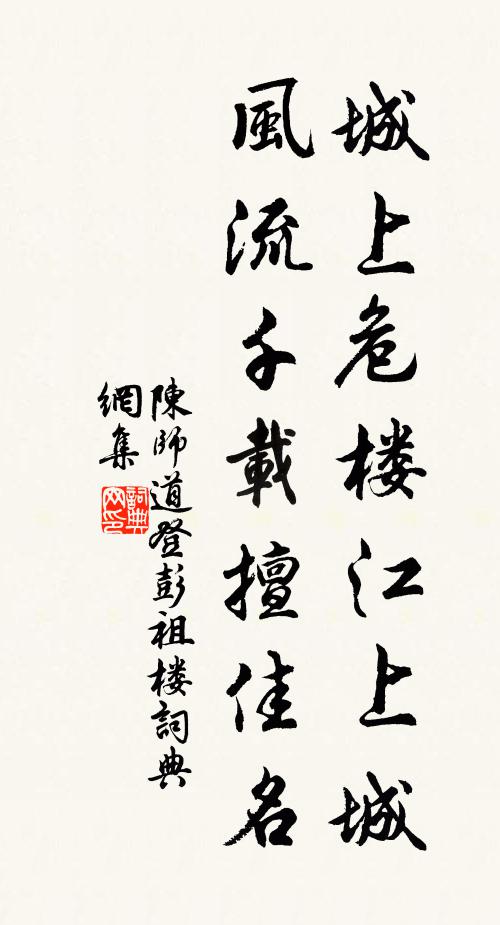 城上危楼江上城
風流千載擅佳名
陳師道登彭祖楼詞典
網集
詞典
网印